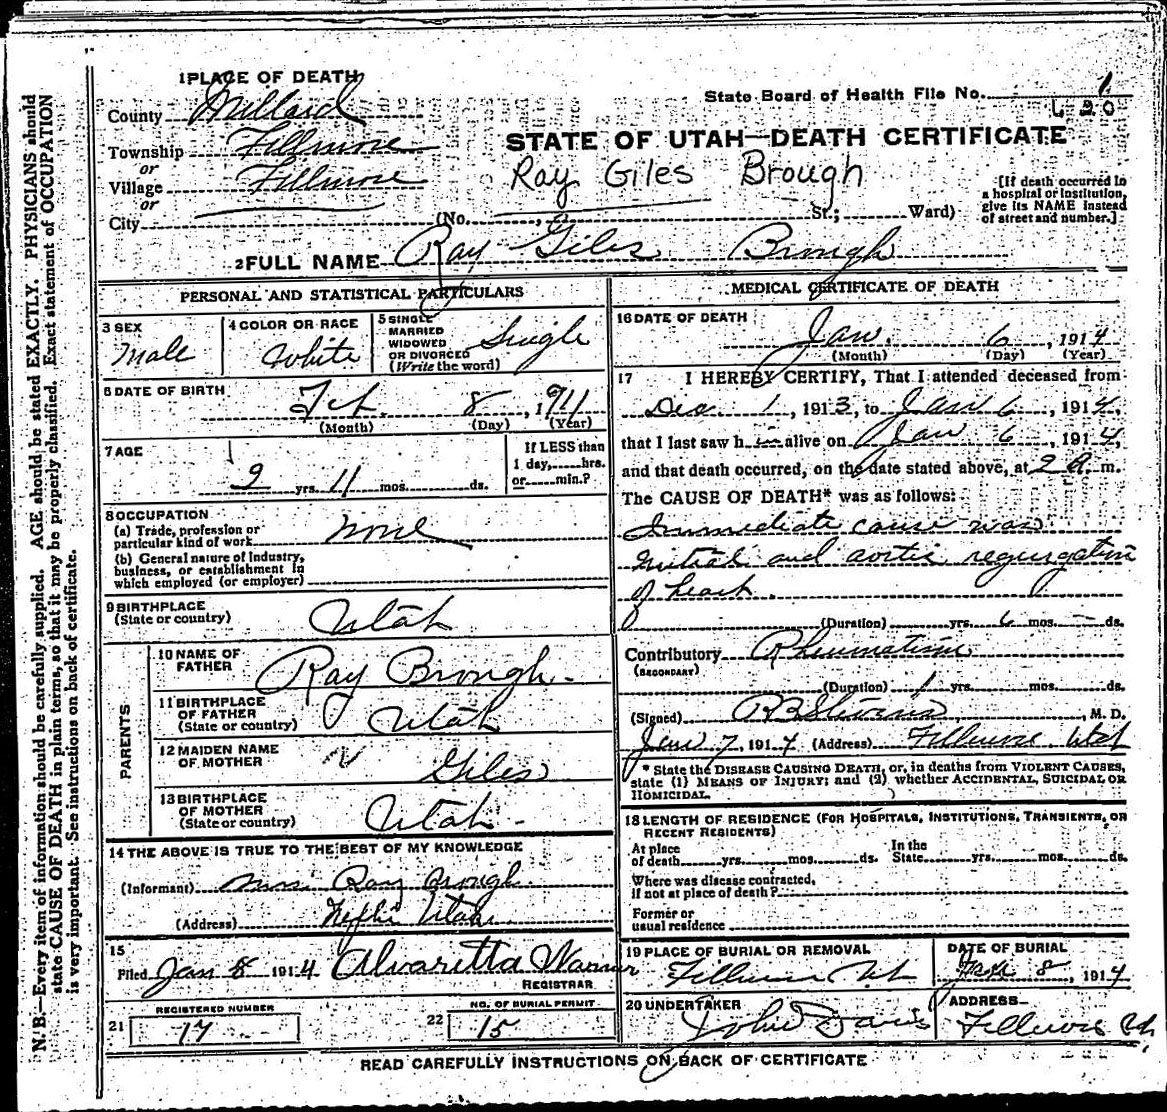 1 PLACE OF DEATH
County Millard
State Board of Health File No.
Township Fillmore
or
STATE OF UTAH—DEATH CERTIFICATE
Village Fillmore
or
Ray Giles Brough
City (No. , St.; Ward)
[If death occurred in a hospital or institution, give its NAME instead of street and number.]
2 FULL NAME Ray Giles Brough
PERSONAL AND STATISTICAL PARTICULARS
3 SEX
Male
4 COLOR OR RACE
White
5 SINGLE
MARRIED
WIDOWED
OR DIVORCED
(Write the word)
Single
6 DATE OF BIRTH
Feb. 8, 1911
(Month) (Day) (Year)
7 AGE
2 yrs. 11 mos. ds.
If LESS than
1 day, hrs.
or min.?
8 OCCUPATION
(a) Trade, profession or
particular kind of work none
(b) General nature of Industry,
business, or establishment in
which employed (or employer)
9 BIRTHPLACE
(State or country) Utah
PARENTS
10 NAME OF
FATHER Ray Brough
11 BIRTHPLACE
OF FATHER
(State or country) Utah
12 MAIDEN NAME
OF MOTHER Giles
13 BIRTHPLACE
OF MOTHER
(State or country) Utah
14 THE ABOVE IS TRUE TO THE BEST OF MY KNOWLEDGE
(Informant) Mrs. Ray Brough
(Address) Nephi Utah
15
Filed Jan 8 1914 Alvaretta Warner
REGISTRAR
REGISTERED NUMBER
21 17
NO. OF BURIAL PERMIT
22 15
MEDICAL CERTIFICATE OF DEATH
16 DATE OF DEATH
Jan. 6, 1914
(Month) (Day) (Year)
17 I HEREBY CERTIFY, That I attended deceased from
Dec 1, 1913, to Jan 6, 1914,
that I last saw h im alive on Jan 6, 1914,
and that death occurred, on the date stated above, at 2 A. m.
The CAUSE OF DEATH* was as follows:
Immediate cause was
mitral and aortic regurgation
of heart.
(Duration) yrs. 6 mos. — ds.
Contributory Rheumatism
(SECONDARY)
(Duration) 1 yrs. mos. ds.
(Signed) , M. D.
Jan 7, 1914 (Address) Fillmore Utah
* State the DISEASE CAUSING DEATH, or, in deaths from VIOLENT CAUSES,
state (1) MEANS OF INJURY; and (2) whether ACCIDENTAL, SUICIDAL OR
HOMICIDAL.
18 LENGTH OF RESIDENCE (FOR HOSPITALS, INSTITUTIONS, TRANSIENTS, OR
RECENT RESIDENTS)
At place In the
of death yrs. mos. ds. State yrs. mos. ds.
Where was disease contracted,
if not at place of death?
Former or
usual residence
19 PLACE OF BURIAL OR REMOVAL
Fillmore Ut
DATE OF BURIAL
Jan 8, 1914
20 UNDERTAKER
John Davis
ADDRESS
Fillmore
READ CAREFULLY INSTRUCTIONS ON BACK OF CERTIFICATE
N. B.—Every item of information should be carefully supplied. AGE should be stated EXACTLY. PHYSICIANS should
state CAUSE OF DEATH in plain terms, so that it may be properly classified. Exact statement of OCCUPATION
is very important. See instructions on back of certificate.